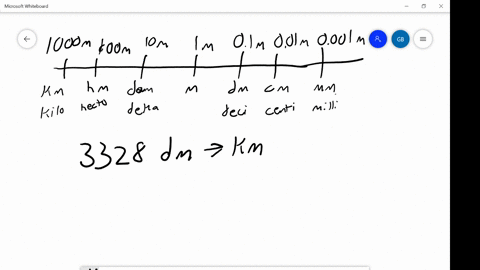 Microsoft Whiteboard
GB
1000m 100m 10m 1m 0.1m 0.01m 0.001m
Km hm dam m dm cm mm
Kilo hecto deka deci centi milli
3328 dm → Km